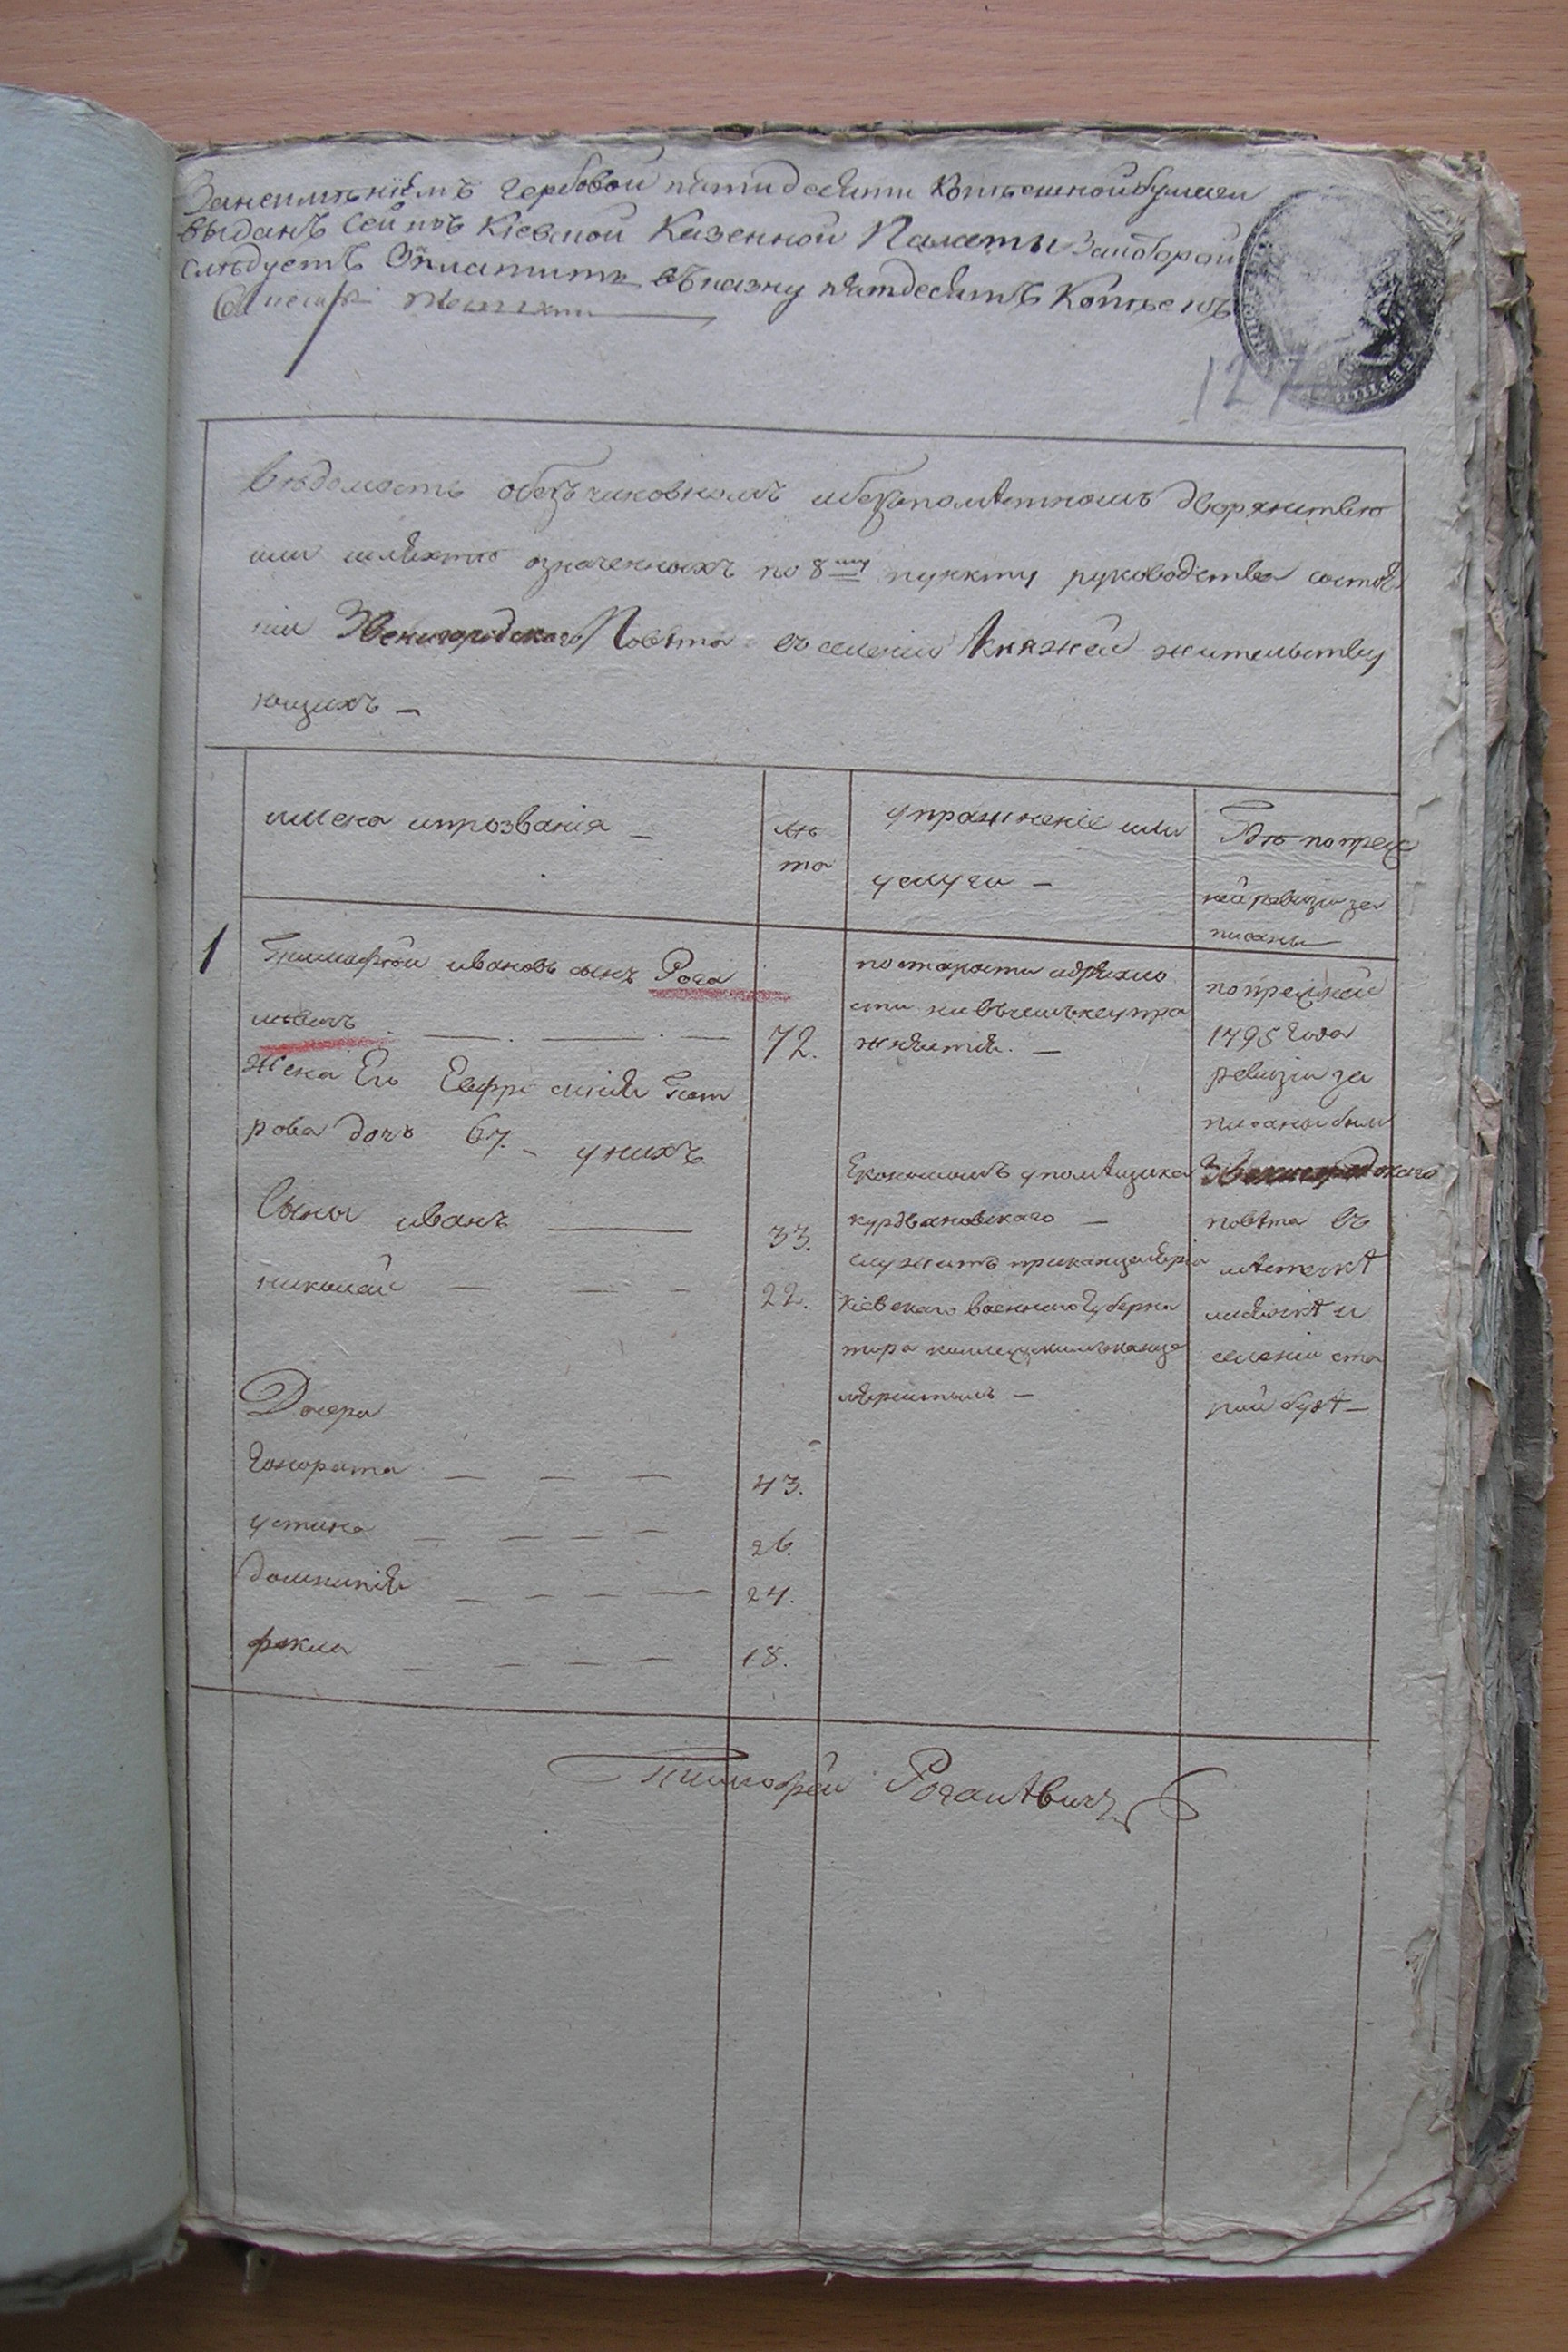 Занеимѣнїемъ гербовой пятидесяти Копѣешной бумаги
выданъ Сей изъ Кіевской Казенной Палаты Закоторой
слѣдуетъ Уплатить въ казну пятдесятъ Копѣекъ
127
Вѣдомость обезчиновномъ ибезпомѣстномъ дворянствѣ
или шляхтѣ означенныхъ по 8му пункту руководства состоя
нія Звенигородскаго Повѣта въ селеніи Княжой жительству
ющихъ —
имена ипрозванія —
лѣ
та
упражненіе или
услуги —
Гдѣ попреж
ней ревизіи за
писаны
1
Тимофѣй ивановъ сынъ Рога
лѣвичъ
72.
постарости идряхло
сти ни въ чемъ не упра
жняится. —
попрежней
1795 года
ревизіи за
писаны были
Звенигородскаго
повѣта въ
мѣстечкѣ
лисянкѣ и
селеніи ста
рой будѣ —
Жена Его Евфросинія Пет
рова дочь 67. — у нихъ
Сыны иванъ
33.
Економомъ упомѣщика
курдвановскаго —
николай
22.
служитъ приканцеляріи
Кіевскаго военнаго Губерна
тора коллежскимъ канце
ляристомъ —
Дочери
Гонората
43.
устина
26.
домникія
24.
фекла
18.
Тимофей Рогалѣвичъ